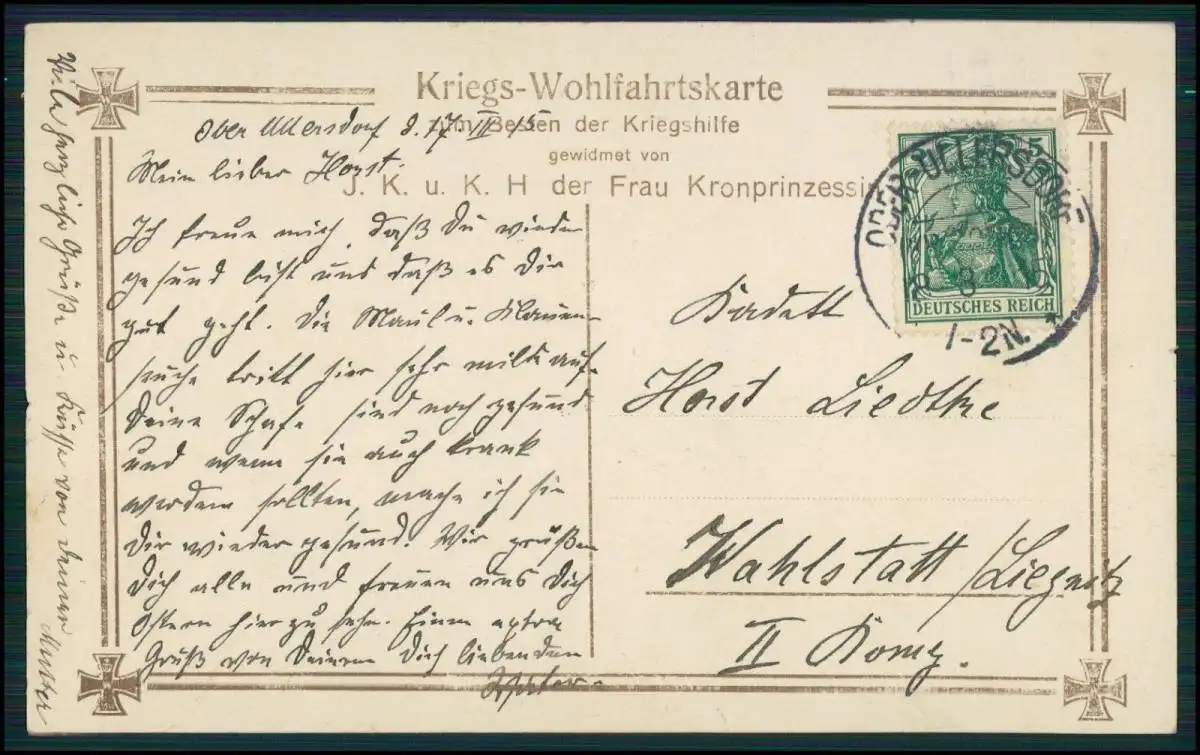 Kriegs-Wohlfahrtskarte
zum Besten der Kriegshilfe
gewidmet von
J. K. u. K. H der Frau Kronprinzessin
Ober Ullersdorf d. 17 III 15
Mein lieber Horst.
Ich freue mich, daß Du wieder
gesund bist und daß es Dir
gut geht. Die Maul u. Klauen-
seuche tritt hier sehr milde auf.
Deine Schafe sind noch gesund
und wenn sie auch krank
werden sollten, mache ich sie
Dir wieder gesund. Wir grüßen
Dich alle und freuen uns Dich
Ostern hier zu sehn. Einen extra
Gruß von Deinem Dich liebenden
Vater.
Viele herzliche Grüße u. Küsse von Deiner Mutter
OBER-ULLERSDORF
1-2N.
5
DEUTSCHES REICH
Kadett
Horst Liedtke
Wahlstatt / Liegnitz
II Komp.